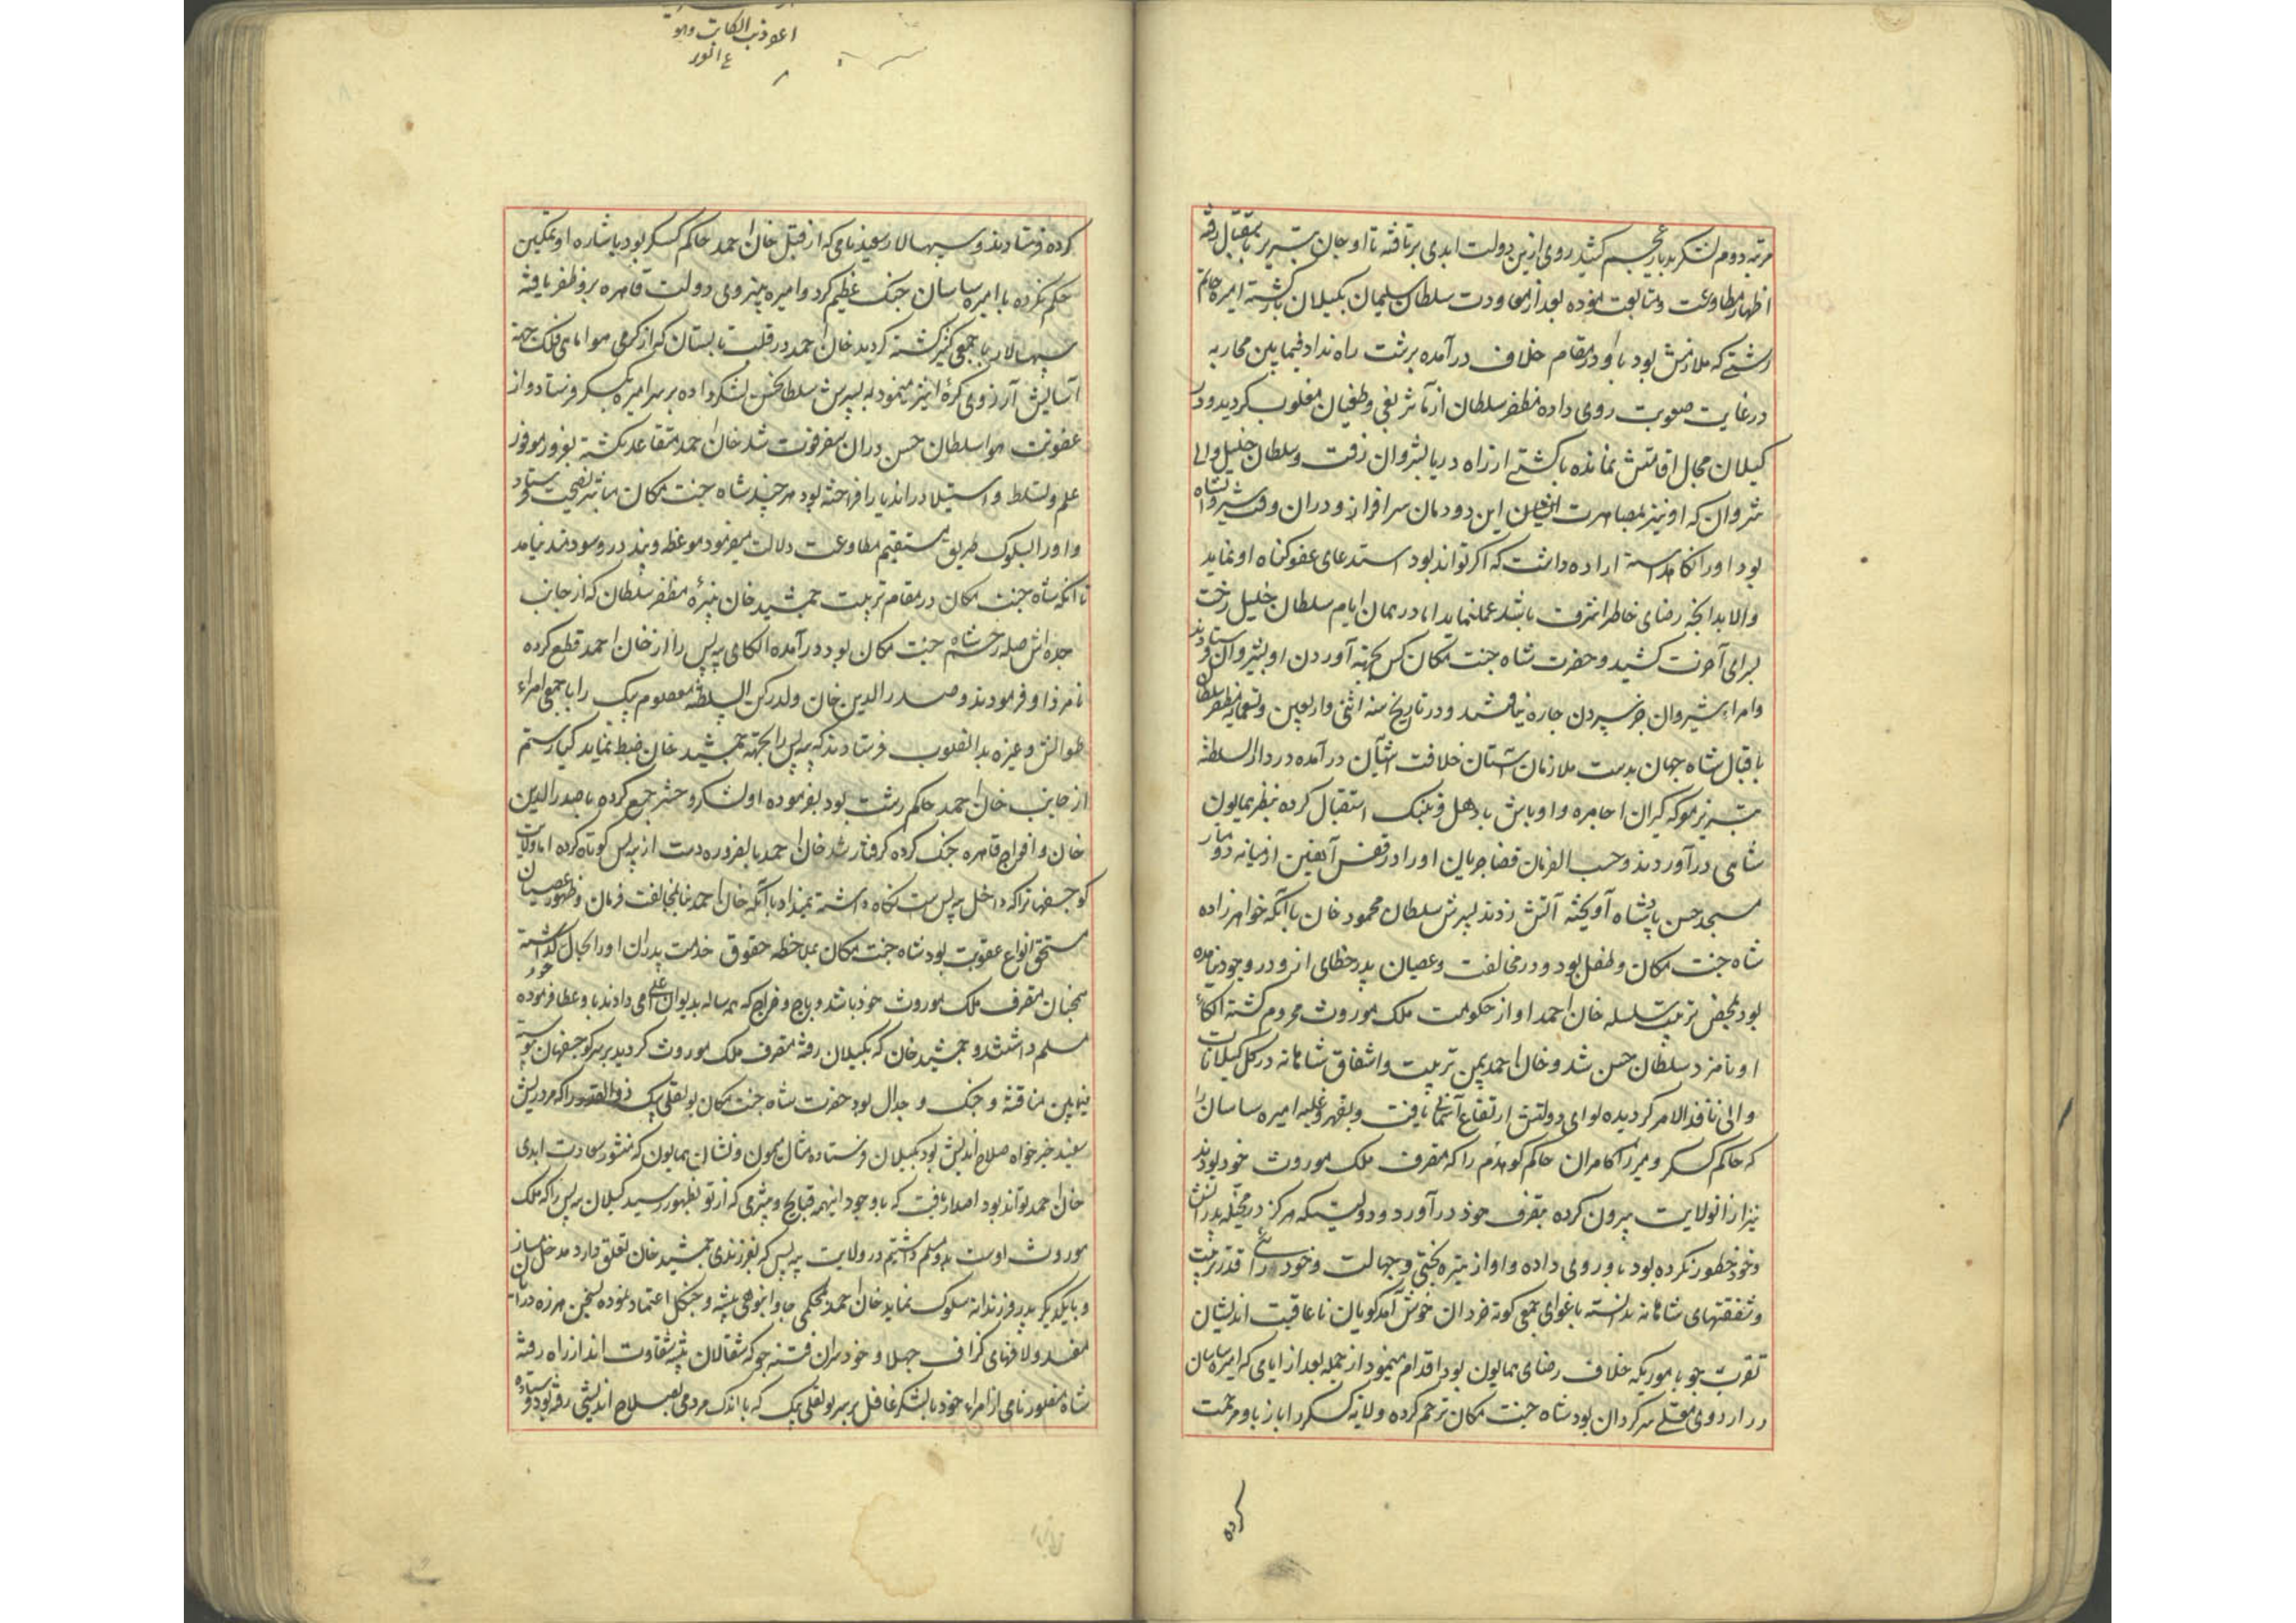 مرتبه دوم لشکر بدیار عجم کشید روی ازین دولت ابدی برتافته تا اوجان تبریز باستقبال رفته
اظهار مطاوعت و متابعت نموده بعد از معاودت سلطان سلیمان بکیلان بازکشته امیره حاتم
رشتی که ملازمش بود با او در مقام خلاف درآمده برشت راه نداد فیمابین محاربه
در غایت صعوبت روی داده مظفر سلطان از تأثیر بغی و طغیان مغلوب کردید و در
کیلان مجال اقامتش نمانده با کشتی از راه دریا بشروان رفت و سلطان خلیل والی
شروان که او نیز بمصاهرت این دودمان سرافراز و دران وقت شیروانشاه
بود او را نکاه داشته اراده داشت که اکر تواند بود استدعای عفو کناه او نماید
والا بدانچه رضای خاطر اشرف باشد عمل نماید اما در همان ایام سلطان خلیل رخت
بسرای آخرت کشید و حضرت شاه جنت مکان کس بجهة آوردن او بشیروان فرستادند
و امراء شیروان جز سپردن چاره نیافتند و در تاریخ سنه اثنی واربعین وتسعمایه مظفر سلطان
باقبال شاه جهان بدست ملازمان آستان خلافت آشیان درآمده در دار السلطنه
تبریز معرکه کیران اجامره و اوباش با دهل و نفیر استقبال کرده بنظر همایون
شاهی درآوردند و حسب الفرمان قضا جریان او را در قفس آهنین از میانه دو منار
مسجد حسن پادشاه آویخته آتش زدند پسرش سلطان محمود خان با آنکه خواهرزاده
شاه جنت مکان و طفل بود و در مخالفت و عصیان پدر خطای ازو در وجود نیامده
بود بمحض تربیت سلسله خان احمد او از حکومت ملک موروث محروم کشته الکاء
او نامزد سلطان حسن شد و خان احمد بیمن تربیت و اشفاق شاهانه در کل کیلانات
والی نافذ الامر کردیده لوای دولتش ارتفاع آسمانی یافت و بقهر و غلبه امیره ساسان را
که حاکم کسکر و میرزا کامران حاکم کوهدم را که متصرف ملک موروث خود بودند
نیز ازانولایت بیرون کرده بتصرف خود درآورد و دولتیکه هرکز در مخیله پدرانش
و خود خطور نکرده بود باو روی داده و او از تیره بختی و جهالت و خودرائی قدر تربیت
و شفقتهای شاهانه ندانسته باغوای جمعی کوته خردان خوش آمدکویان ناعاقبت اندیشان
تقرب جو باموریکه خلاف رضای همایون بود اقدام مینمود از جمله بعد از ایامی که امیره ساسان
در اردوی معلی سرکردان بود شاه جنت مکان ترحم کرده ولایة کسکر را باز باو مرحمت
کرده
اعوذ بالکاتب وهو
ع انور
کرده فرستادند و سپهسالار سعید نامی که از قبل خان احمد حاکم کسکر بود باشاره او تمکین
حکم نکرده با امیره ساسان جنک عظیم کرد و امیره بنیروی دولت قاهره برو ظفر یافته
سپهسالار با جمعی کثیر کشته کردید خان احمد در قلب تابستان که از کرمی هوا ماهی فلک جهة
آسایش آرزوی کرهٔ اثیر مینمود به پسرش سلطان حسن لشکر داده بر سر امیره بکسکر فرستاد و از
عفونت هوا سلطان حسن دران سفر فوت شد خان احمد متقاعد نکشته بغرور موفور
علم و تسلط و استیلا دران دیار افراخته بود هرچند شاه جنت مکان مناشیر نصیحت فرستاد
و او را بسلوک طریق مستقیم مطاوعت دلالت میفرمود موعظه و پند درو سودمند نیامد
تا آنکه شاه جنت مکان در مقام تربیت جمشید خان نبیرهٔ مظفر سلطان که از جانب
جده اش صله رحم شاه جنت مکان بود درآمده الکای بیه پس را از خان احمد قطع کرده
نامزد او فرمودند و صدر الدین خان ولد رکن السلطنه معصوم بیک را با جمعی امراء
طوالش و غیره بدانصوب فرستادند که بیه پس را بجهته جمشید خان ضبط نماید کیا رستم
از جانب خان احمد حاکم رشت بود بفرموده او لشکر و حشر جمع کرده با صدر الدین
خان و افواج قاهره جنک کرده کرفتار شد خان احمد بالضروره دست از بیه پس کوتاه کرده اما ولایت
کوجصفهانرا که داخل بیه پس است نکاه داشته نمیداد با آنکه خان احمد بنا بمخالفت فرمان و ظهور عصیان
مستحق انواع عقوبت بود شاه جنت مکان بملاحظه حقوق خدمت پدران او را بحال کذاشته
همچنان متصرف ملک موروث خود باشد و باج و خراج که همه ساله بدیوان اعلی می دادند باو عطا فرموده
مسلم داشتند و جمشید خان که بکیلان رفته متصرف ملک موروث کردید بر سر کوجصفهان همیشه
فیمابین مناقشه و جنک و جدال بود حضرت شاه جنت مکان یولقلی بیک ذوالقدر را که مرد ریش
سفید خیرخواه صلاح اندیش بود بکیلان فرستاده مثال میمون و نشان همایون که منشور سعادت ابدی
خان احمد تواند بود اصدار یافت که با وجود اینهمه قبایح و بیشرمی که از تو بظهور رسید کیلان بیه پس را که ملک
موروث اوست بدو مسلم داشتیم در ولایت بیه پس که بفرزندی جمشید خان تعلق دارد مدخل نسازد
و با یکدیکر پدر فرزندانه سلوک نماید خان احمد بمحکمی جا و انبوهی بیشه و جنکل اعتماد نموده بسخن هرزه درایان
مفسد و لافهای کزاف جهلا و خودسران فتنه جو که شغالان بیشه شقاوت اند از راه رفته
شاه منصور نامی از امراء خود با لشکر غافل بر سر یولقلی بیک که با اندک مردمی بصلاح اندیشی رفته بود فرستاده